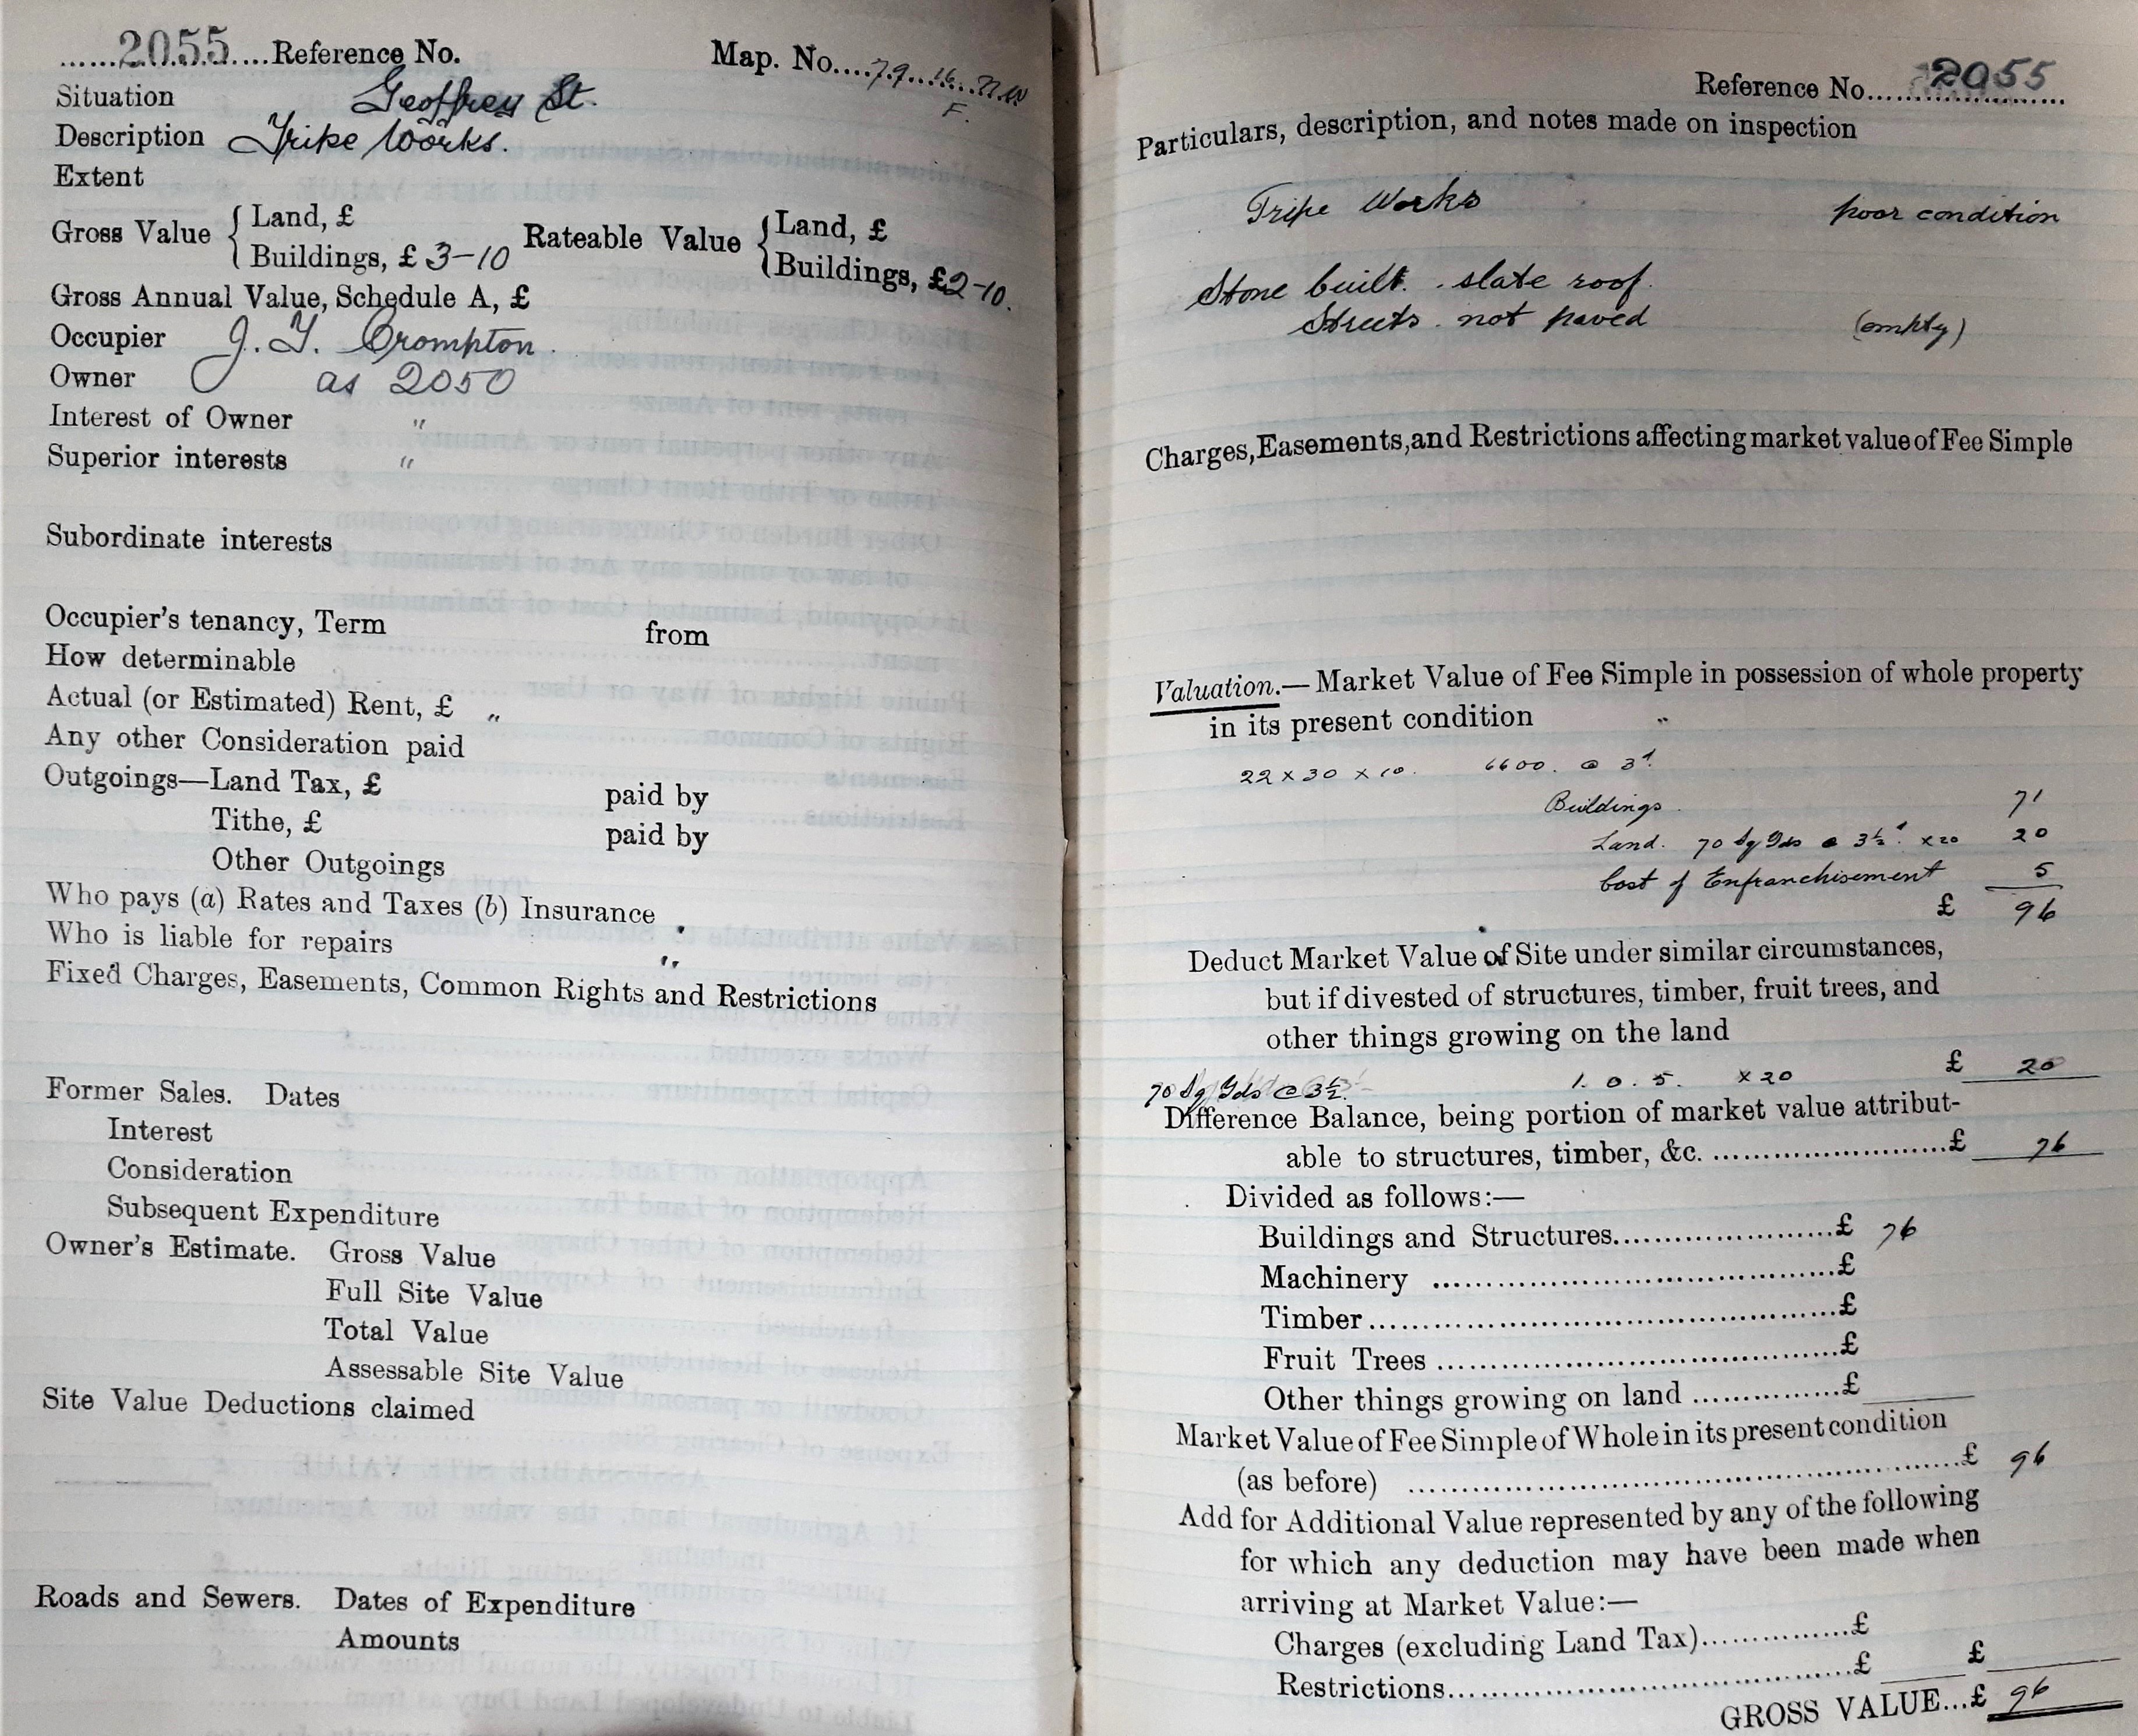 ......2055....Reference No. Map. No....79...16...
F.
Situation Geoffrey St.
Description Tripe Works.
Extent
Gross Value { Land, £ Rateable Value { Land, £
Buildings, £ 3-10 Buildings, £2-10.
Gross Annual Value, Schedule A, £
Occupier J. T. Crompton
Owner as 2050
Interest of Owner "
Superior interests "
Subordinate interests
Occupier's tenancy, Term from
How determinable
Actual (or Estimated) Rent, £ "
Any other Consideration paid
Outgoings—Land Tax, £ paid by
Tithe, £ paid by
Other Outgoings
Who pays (a) Rates and Taxes (b) Insurance
Who is liable for repairs "
Fixed Charges, Easements, Common Rights and Restrictions
Former Sales. Dates
Interest
Consideration
Subsequent Expenditure
Owner's Estimate. Gross Value
Full Site Value
Total Value
Assessable Site Value
Site Value Deductions claimed
Roads and Sewers. Dates of Expenditure
Amounts
Reference No. 2055
Particulars, description, and notes made on inspection
Tripe Works poor condition
Stone built. slate roof.
Streets. not paved (empty)
Charges, Easements, and Restrictions affecting market value of Fee Simple
Valuation.—Market Value of Fee Simple in possession of whole property
in its present condition "
22 x 30 x 10. 6600. @ 3d
Buildings. 71
Land. 70 Sq Yds @ 3½d x 20 20
Cost of Enfranchisement 5
£ 96
Deduct Market Value of Site under similar circumstances,
but if divested of structures, timber, fruit trees, and
other things growing on the land
70 Sq Yds @ 3½. 1. 0. 5. x 20 £ 20
Difference Balance, being portion of market value attribut-
able to structures, timber, &c. ........................£ 76
Divided as follows:—
Buildings and Structures........................£ 76
Machinery ........................£
Timber........................£
Fruit Trees ........................£
Other things growing on land ................£
Market Value of Fee Simple of Whole in its present condition
(as before) ........................£ 96
Add for Additional Value represented by any of the following
for which any deduction may have been made when
arriving at Market Value:—
Charges (excluding Land Tax)................£
Restrictions........................£ £
GROSS VALUE...£ 96